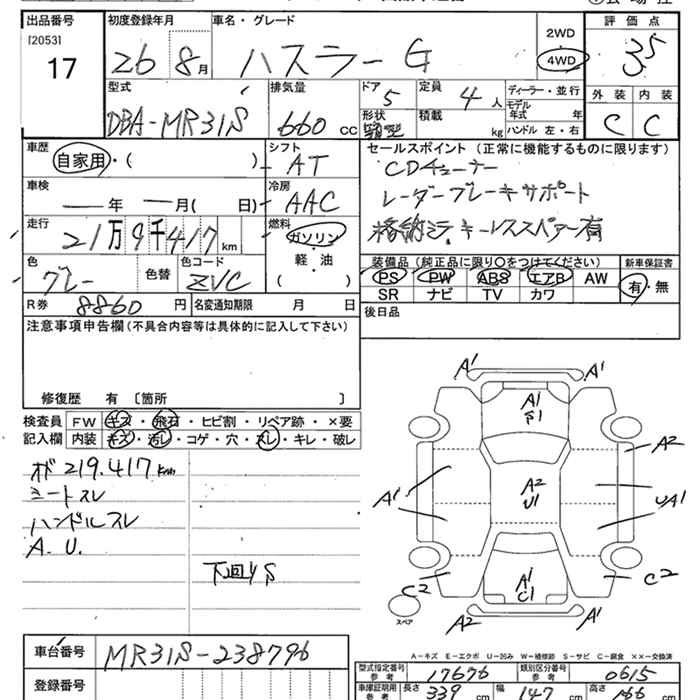 出品番号 初度登録年月 車名・グレード 2WD 評価点
[2053]
17 26 8月 ハスラー G 4WD 3.5
型式 排気量 ドア 定員 ディーラー・並行 外装 内装
モデル
DBA-MR31S 660 CC 5 4人 年式 年 C C
形状 積載 kg ハンドル 左・右
箱型
車歴 シフト セールスポイント (正常に機能するものに限ります)
自家用・( ) AT CDチューナー
車検 冷房 レーダーブレーキサポート
年 月( 日) AAC 格納ミラ キーレススペアー有
走行 燃料
21万9千417km ガソリン
軽・油
( )
装備品 (純正品に限り○をつけてください) 新車保証書
色 グレー 色替 色コード ZVC PS PW ABS エアB AW 有・無
SR ナビ TV カワ
R券 8860円 名変通知期限 月 日 後日品
注意事項申告欄(不具合内容等は具体的に記入して下さい)
修復歴 有 〔箇所 〕
検査員 FW キズ・飛石・ヒビ割・リペア跡・×要
記入欄 内装 キズ・汚レ・コゲ・穴・スレ・キレ・破レ
オド 219.417km
シートスレ
ハンドルスレ
A.U.
下回りS
A1 A1
A1
S1
A2
A1 A2 UA1
U1
C2 A1 C2
C1
スペア A2 A1
A-キズ E-エクボ U-凹み W-補修跡 S-サビ C-腐食 ××-交換済
車台番号 MR31S-238796
登録番号
型式指定番号 参考 17676 類別区分番号 参考 0615
車庫証明用 参考 長さ 339cm 幅 147cm 高さ 166cm